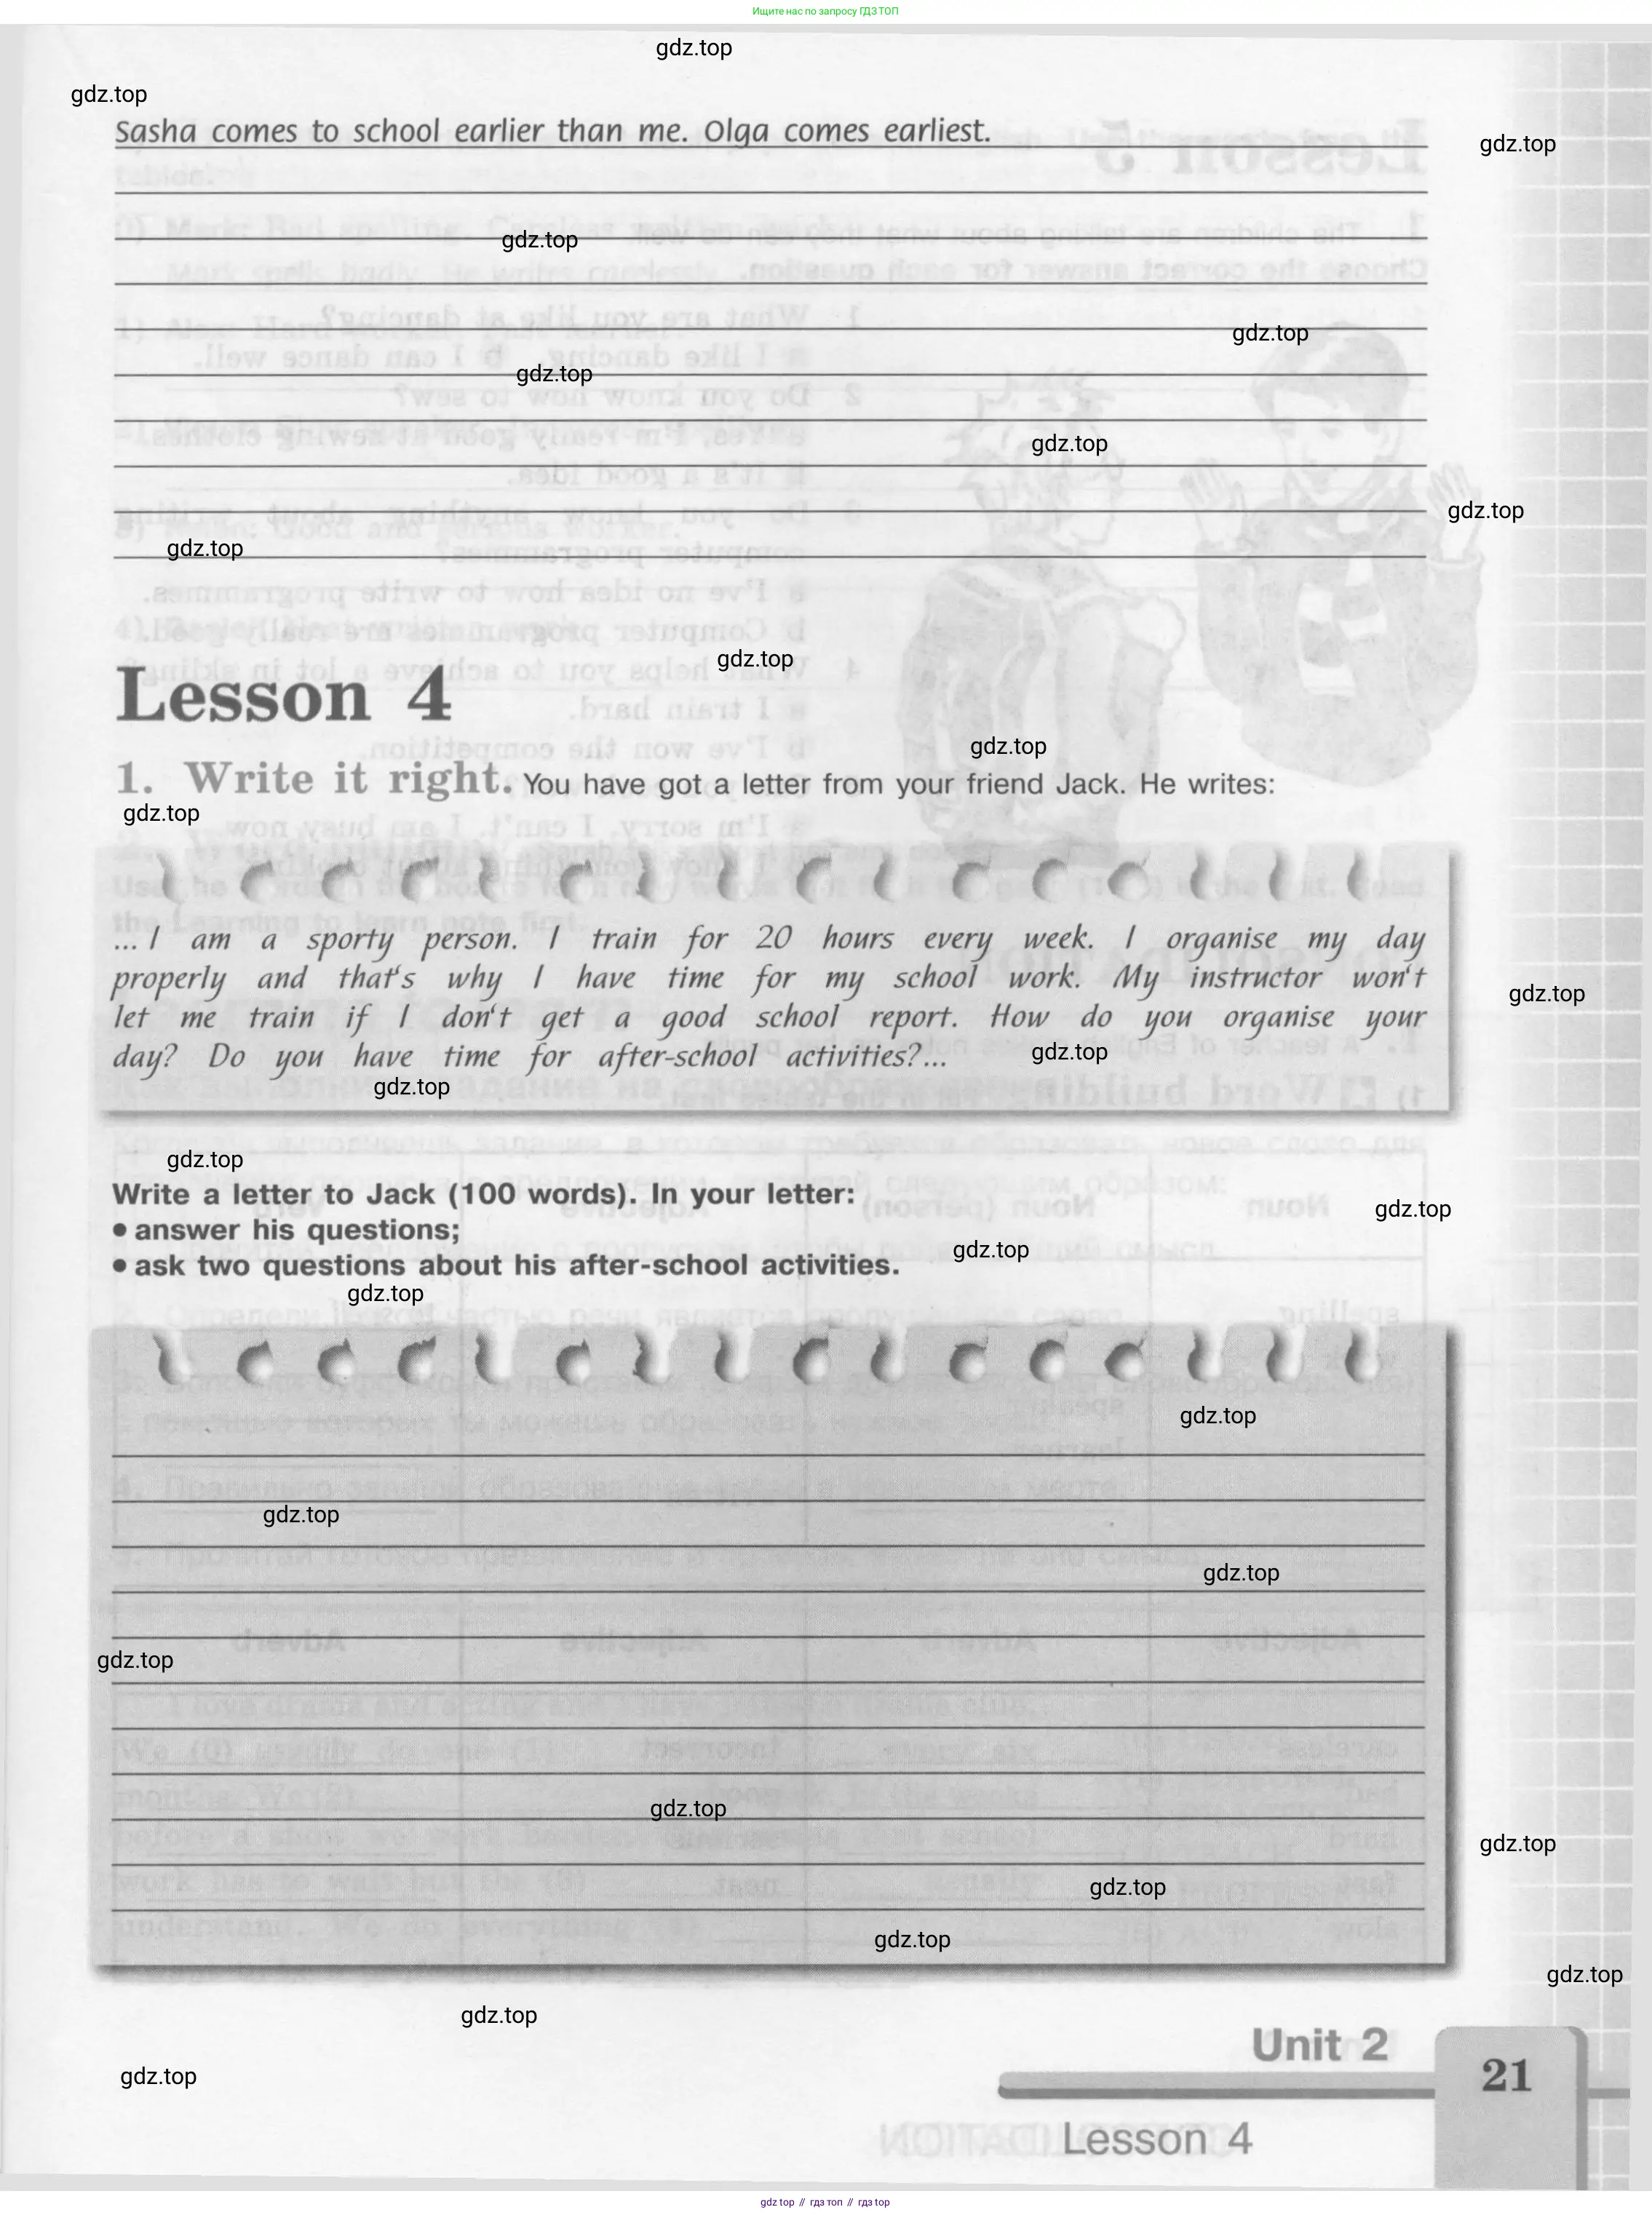 Ищите нас по запросу ГДЗ ТОП
gdz.top
gdz.top
Sasha comes to school earlier than me. Olga comes earliest.
gdz.top
gdz.top
gdz.top
gdz.top
gdz.top
gdz.top
gdz.top
gdz.top
Lesson 4
gdz.top
1. Write it right. You have got a letter from your friend Jack. He writes:
gdz.top
... I am a sporty person. I train for 20 hours every week. I organise my day
properly and that's why I have time for my school work. My instructor won't
gdz.top
let me train if I don't get a good school report. How do you organise your
day? Do you have time for after-school activities?...
gdz.top
gdz.top
gdz.top
Write a letter to Jack (100 words). In your letter:
gdz.top
• answer his questions;
gdz.top
• ask two questions about his after-school activities.
gdz.top
gdz.top
gdz.top
gdz.top
gdz.top
gdz.top
gdz.top
gdz.top
gdz.top
gdz.top
gdz.top
Unit 2
21
gdz.top
Lesson 4
gdz top // гдз топ // гдз top